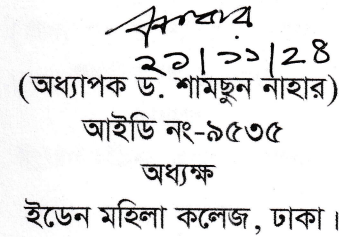 ২১|১১|২৪
(অধ্যাপক ড. শামছুন নাহার)
আইডি নং-৯৫৩৫
অধ্যক্ষ
ইডেন মহিলা কলেজ, ঢাকা।